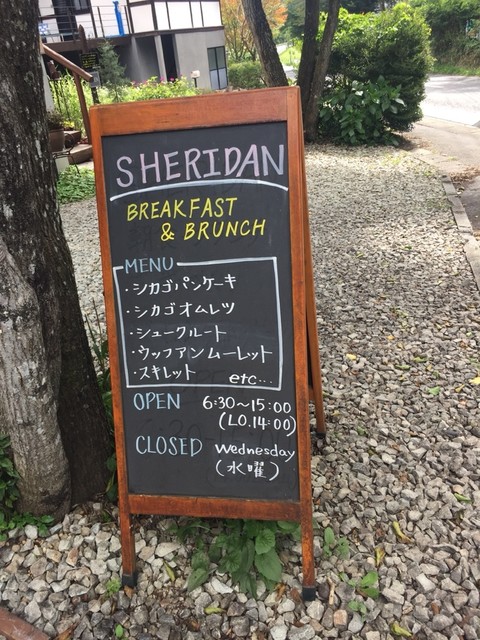 SHERIDAN
BREAKFAST
& BRUNCH
MENU
・シカゴパンケーキ
・シカゴオムレツ
・シュークルート
・ウッファンムーレット
・スキレット etc...
OPEN 6:30～15:00
(L.O.14:00)
CLOSED Wednesday
(水曜)